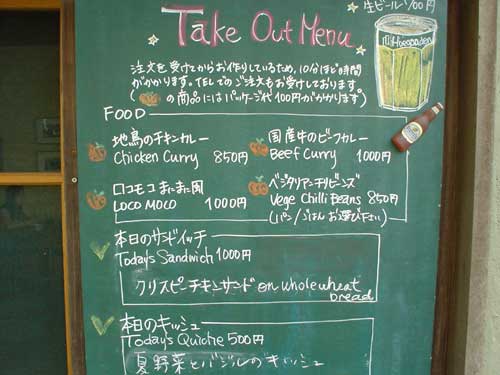 Take Out Menu
生ビール 700円
注文を受けてからお作りしているため、10分ほど時間
がかかります。TELでのご注文もお受けしております。
( の商品にはパッケージ代100円がかかります)
FOOD
地鳥のチキンカレー
Chicken Curry 850円
国産牛のビーフカレー
Beef Curry 1000円
ロコモコ まにまに風
LOCO MOCO 1000円
ベジタリアンチリビーンズ
Vege Chilli Beans 850円
(パン/ごはん お選び下さい)
本日のサンドイッチ
Today's Sandwich 1000円
クリスピーチキンサンド on whole wheat
bread
本日のキッシュ
Today's Quiche 500円
夏野菜とバジルのキッシュ